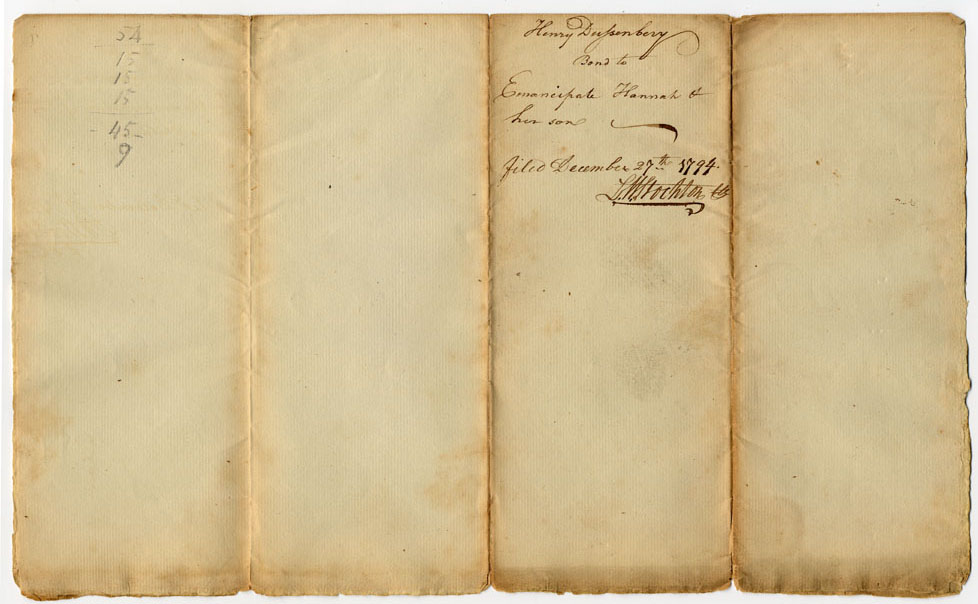 54
15
15
15
- 45 -
9
Henry Dussenbery
Bond to
Emancipate Hannah &
her son
filed December 27th 1794.
L. W. Stockton Clk